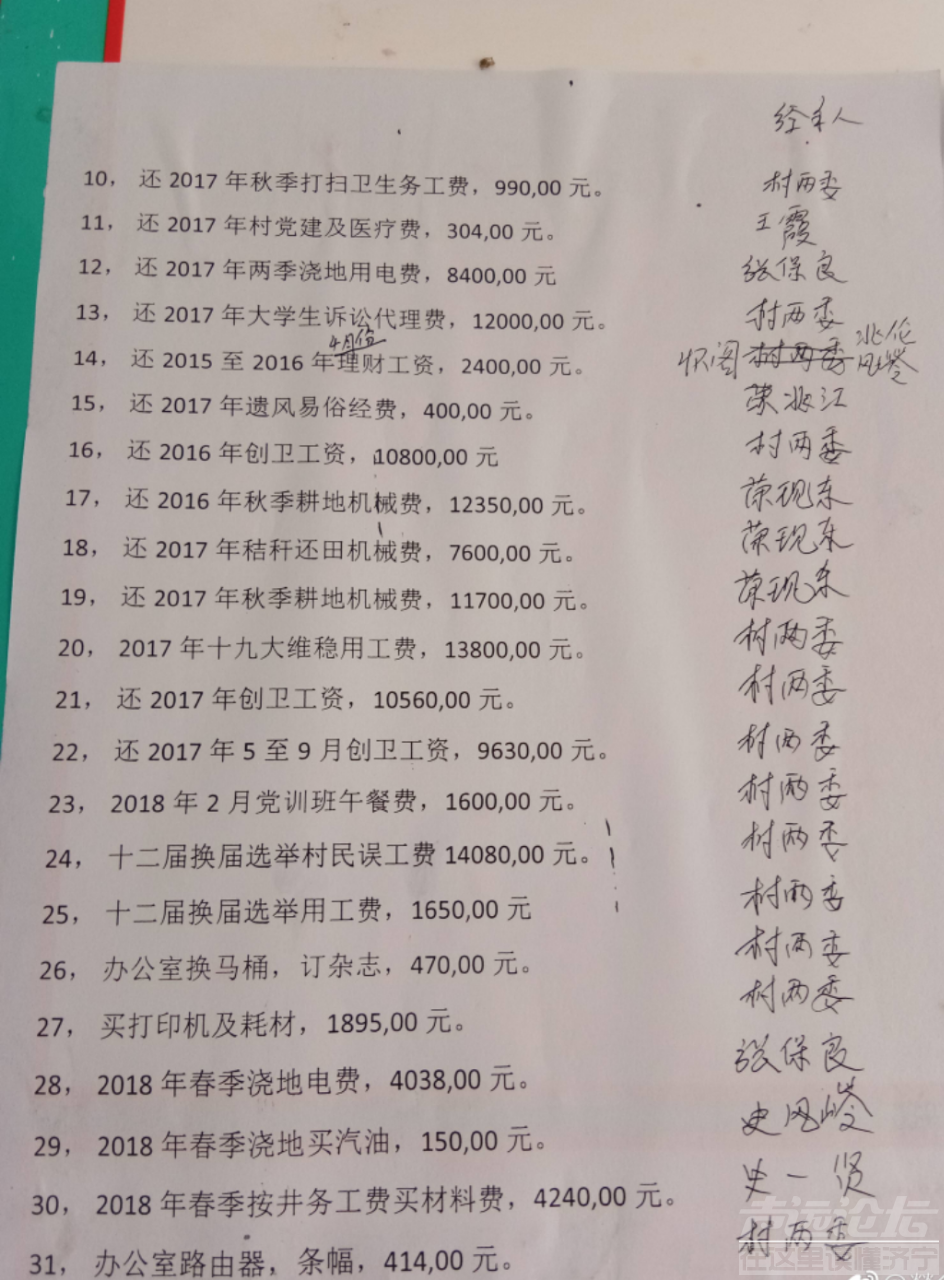 经手人
10， 还 2017 年秋季打扫卫生务工费，990,00 元。 村两委
11， 还 2017 年村党建及医疗费，304,00 元。 王霞
12， 还 2017 年两季浇地用电费，8400,00 元 张保良
13， 还 2017 年大学生诉讼代理费，12000,00 元。 村两委
4月份
14， 还 2015 至 2016 年理财工资，2400,00 元。 村两委
15， 还 2017 年遗风易俗经费，400,00 元。
16， 还 2016 年创卫工资，10800,00 元 村两委
17， 还 2016 年秋季耕地机械费，12350,00 元。
18， 还 2017 年秸秆还田机械费，7600,00 元。
19， 还 2017 年秋季耕地机械费，11700,00 元。
20， 2017 年十九大维稳用工费，13800,00 元。 村两委
21， 还 2017 年创卫工资，10560,00 元。 村两委
22， 还 2017 年 5 至 9 月创卫工资，9630,00 元。 村两委
23， 2018 年 2 月党训班午餐费，1600,00 元。 村两委
24， 十二届换届选举村民误工费 14080,00 元。 村两委
25， 十二届换届选举用工费，1650,00 元 村两委
26， 办公室换马桶，订杂志，470,00 元。 村两委
27， 买打印机及耗材，1895,00 元。 村两委
28， 2018 年春季浇地电费，4038,00 元。 张保良
29， 2018 年春季浇地买汽油，150,00 元。 史风岭
30， 2018 年春季按井务工费买材料费，4240,00 元。 史一贤
31， 办公室路由器，条幅，414,00 元。 村两委
在这里读懂济宁